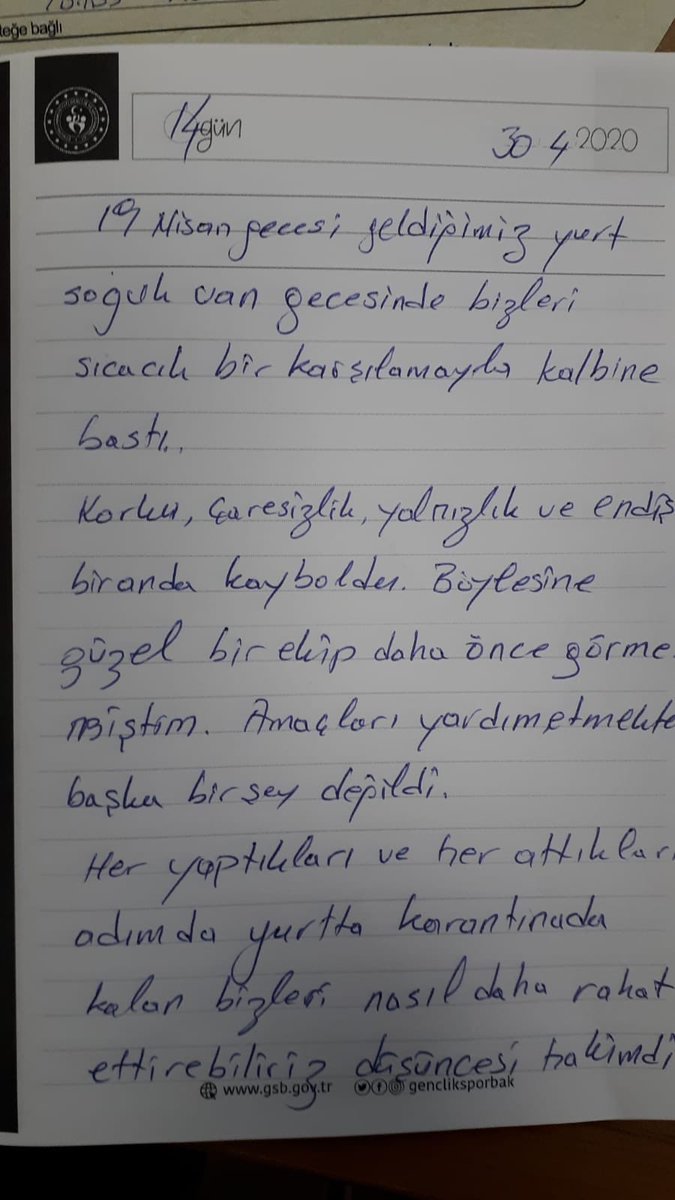 teğe bağlı
14 gün
30 4 2020
19 Nisan gecesi geldiğimiz yurt
soğuk van gecesinde bizleri
sıcacık bir karşılamayla kalbine
bastı.
Korku, Çaresizlik, yalnızlık ve endiş
biranda kayboldu. Böylesine
güzel bir ekip daha önce görme
miştim. Amaçları yardımetmekte
başka birşey değildi.
Her yaptıkları ve her attıkları
adımda yurtta karantinada
kalan bizleri nasıl daha rahat
ettirebiliriz düşüncesi hakimdi
www.gsb.gov.tr gencliksporbak